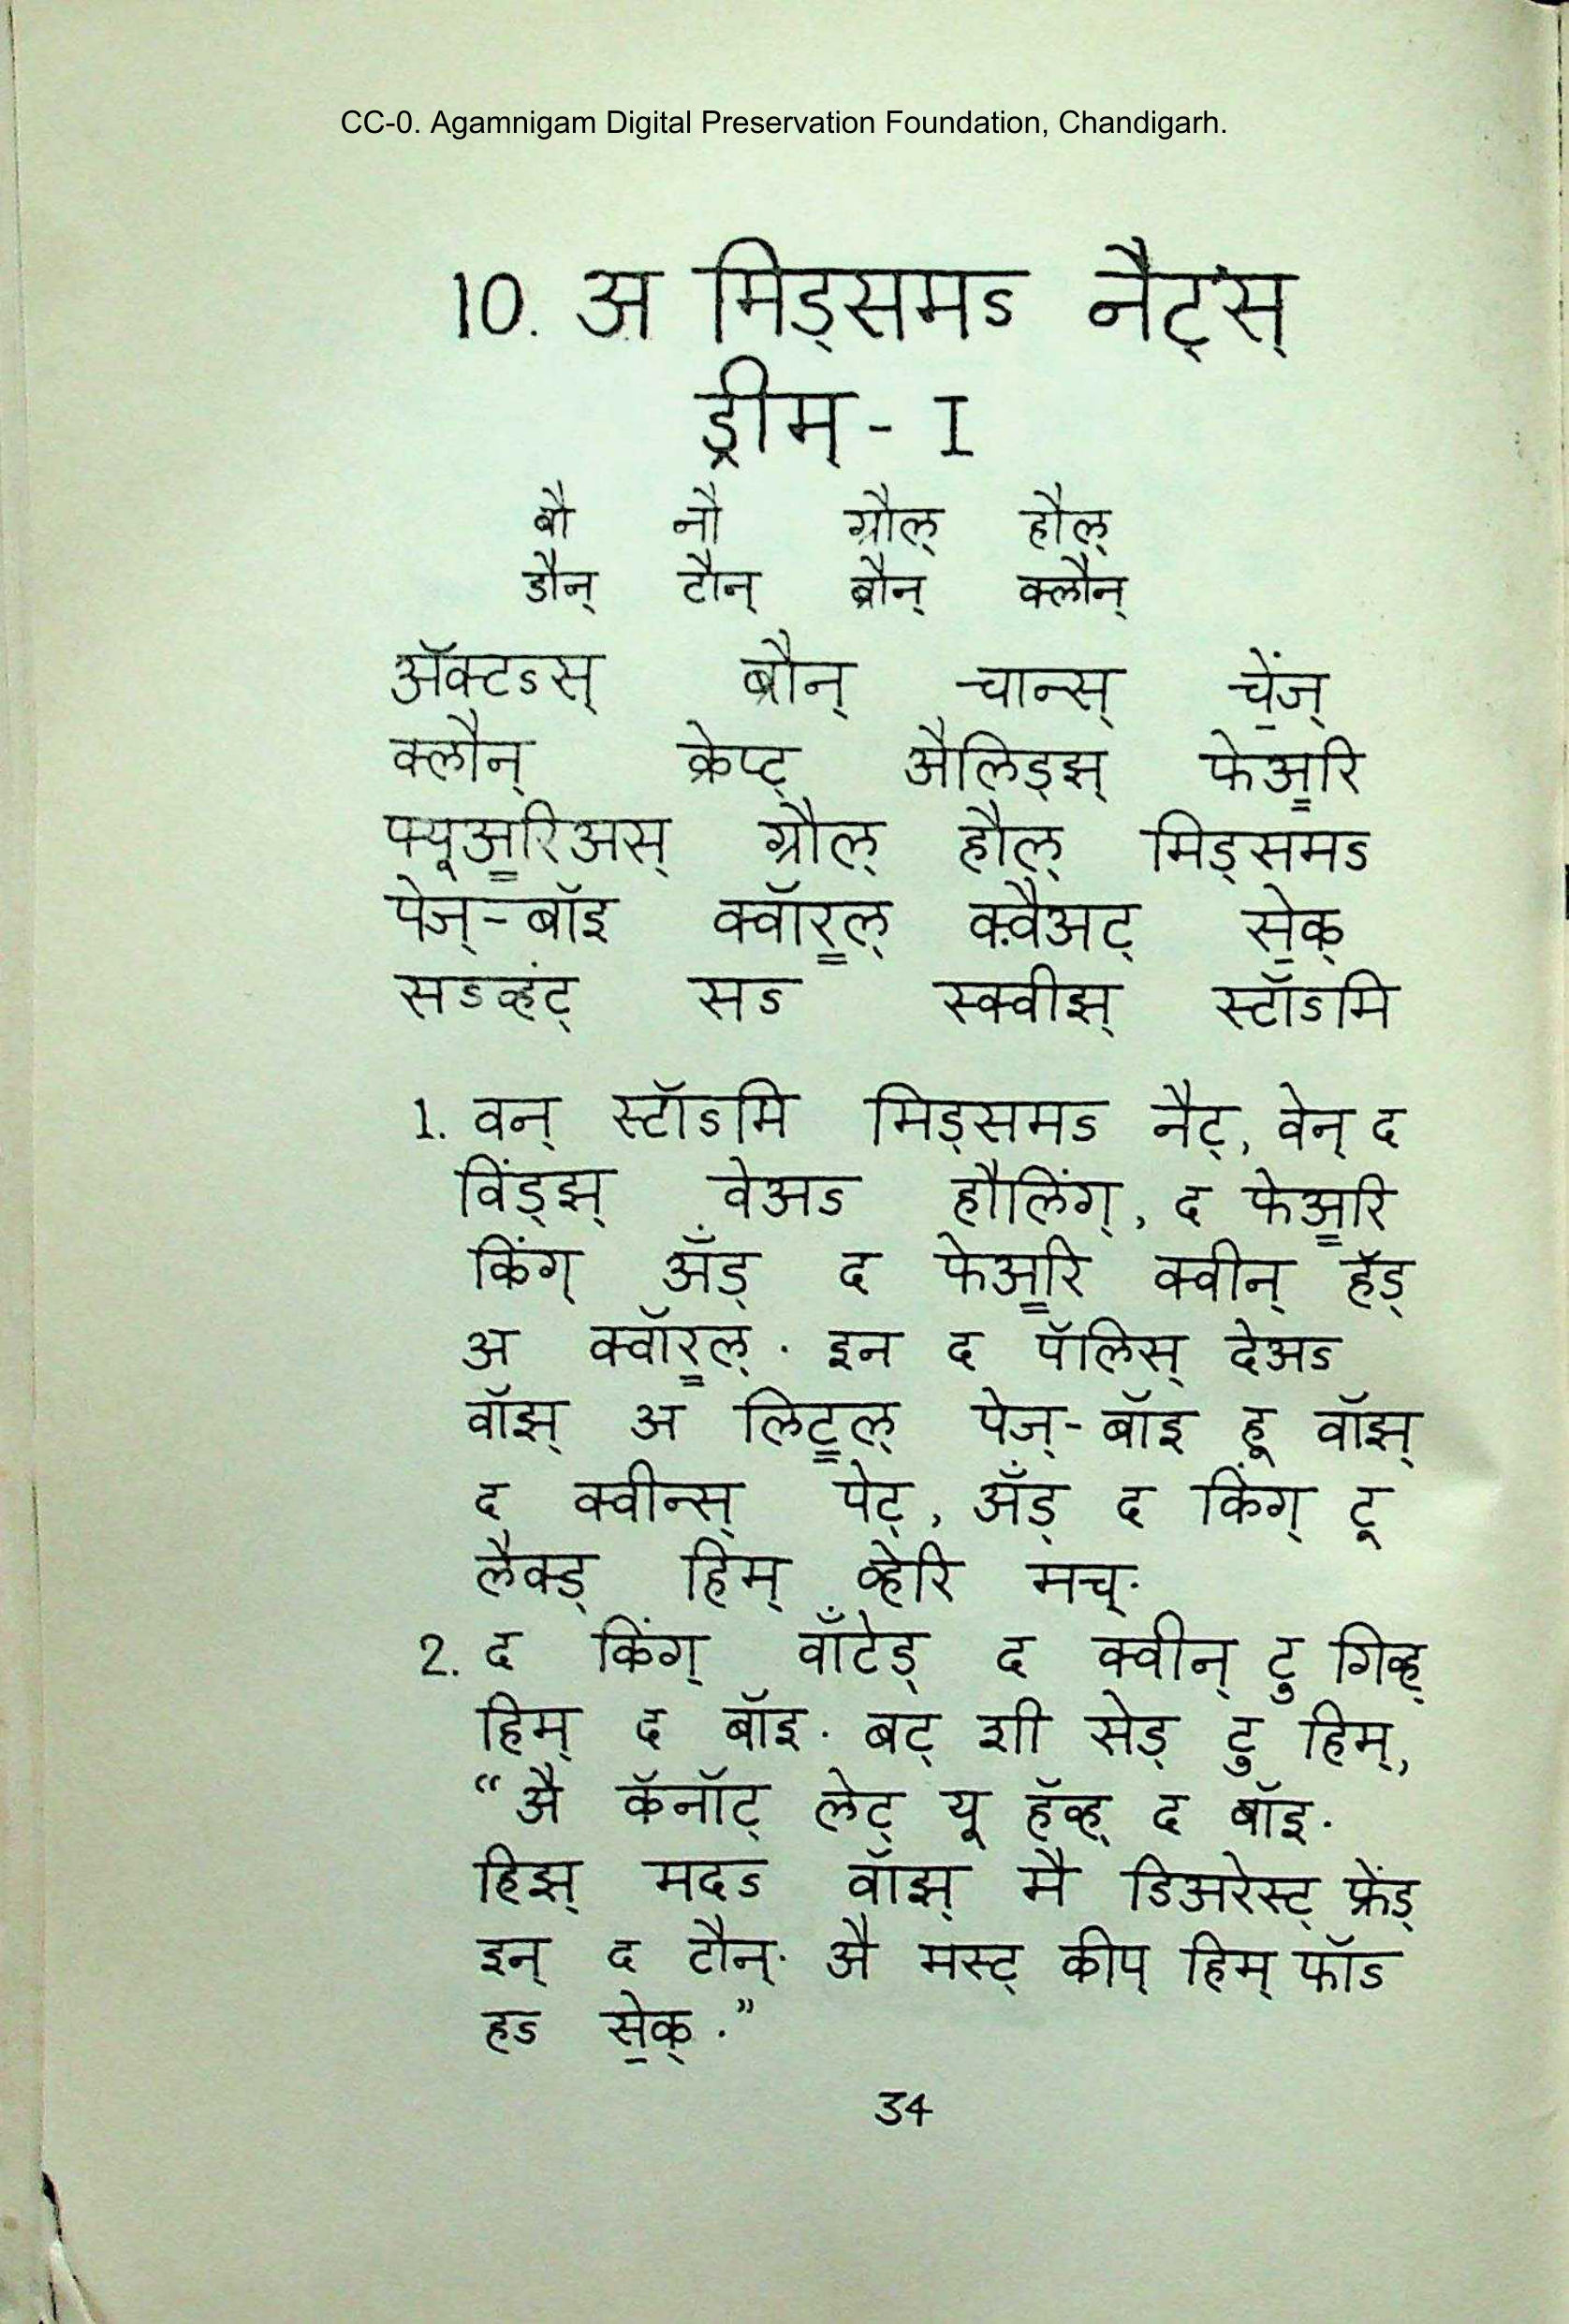 CC-0. Agamnigam Digital Preservation Foundation, Chandigarh.
10. अ मिड्समऽ नैट्स्
ड्रीम् - I
बौ नौ ग्रौल् हौल्
डौन् टौन् ब्रौन् क्लौन्
ॲक्टऽस् ब्रौन् चान्स् चे॒ंज्
क्लौन् क्रेप्ट् औलिड्झ् फेअ॒रि
फ्यूअ॒रिअस् ग्रौल् हौल् मिड्समऽ
पेज्-बॉइ क्वॉर॒ल् क्वैअट् से॒क्
सऽव्हंट् सऽ स्क्वीझ् स्टॉऽमि
1. वन् स्टॉऽमि मिड्समऽ नैट्, वेन् द
विंड्झ् वेअऽ हौलिंग्, द फेअ॒रि
किंग् ॲंड् द फेअ॒रि क्वीन् हॅड्
अ क्वॉर॒ल्. इन द पॅलिस् देअऽ
वॉझ् अ लिट॒ल् पेज्-बॉइ हू वॉझ्
द क्वीन्स् पेट्, ॲंड् द किंग् टू
लैक्ड् हिम् व्हेरि मच्.
2. द किंग् वॉंटेड् द क्वीन् टु गिव्ह्
हिम् द बॉइ. बट् शी सेड् टु हिम्,
“अै कॅनॉट् लेट् यू हॅव्ह् द बॉइ.
हिझ् मदऽ वॉझ् मै डिअरेस्ट् फ्रेंड्
इन् द टौन्. अै मस्ट् कीप् हिम् फॉऽ
हऽ से॒क्.”
34